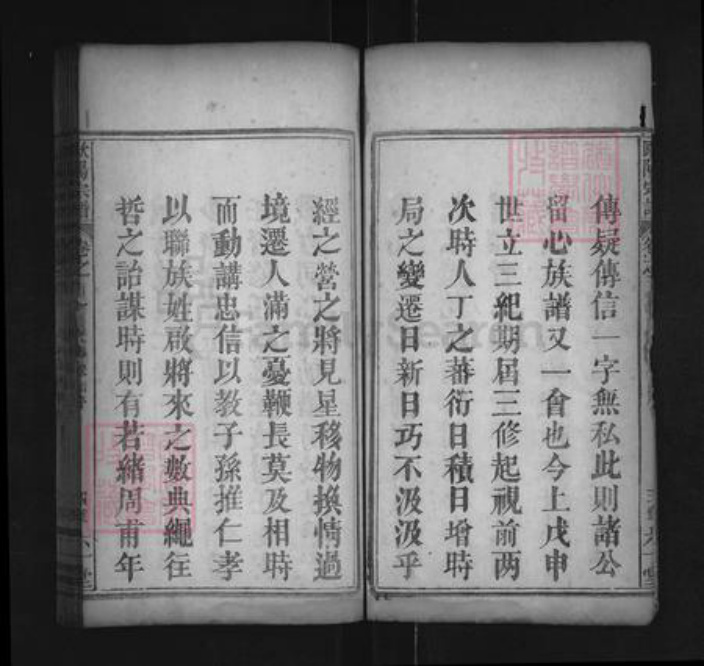 傳疑傳信一字無私此則諸公
留心族譜又一會也今上戊申
世立三紀期屆三修起視前两
次時人丁之蕃衍日積日增時
局之變遷日新日巧不汲汲乎
經之營之將見星移物換情過
境遷人滿之憂鞭長莫及相時
而動講忠信以教子孫推仁孝
以聯族姓啟將來之數典繩往
哲之詒謀時則有若緒周甫年